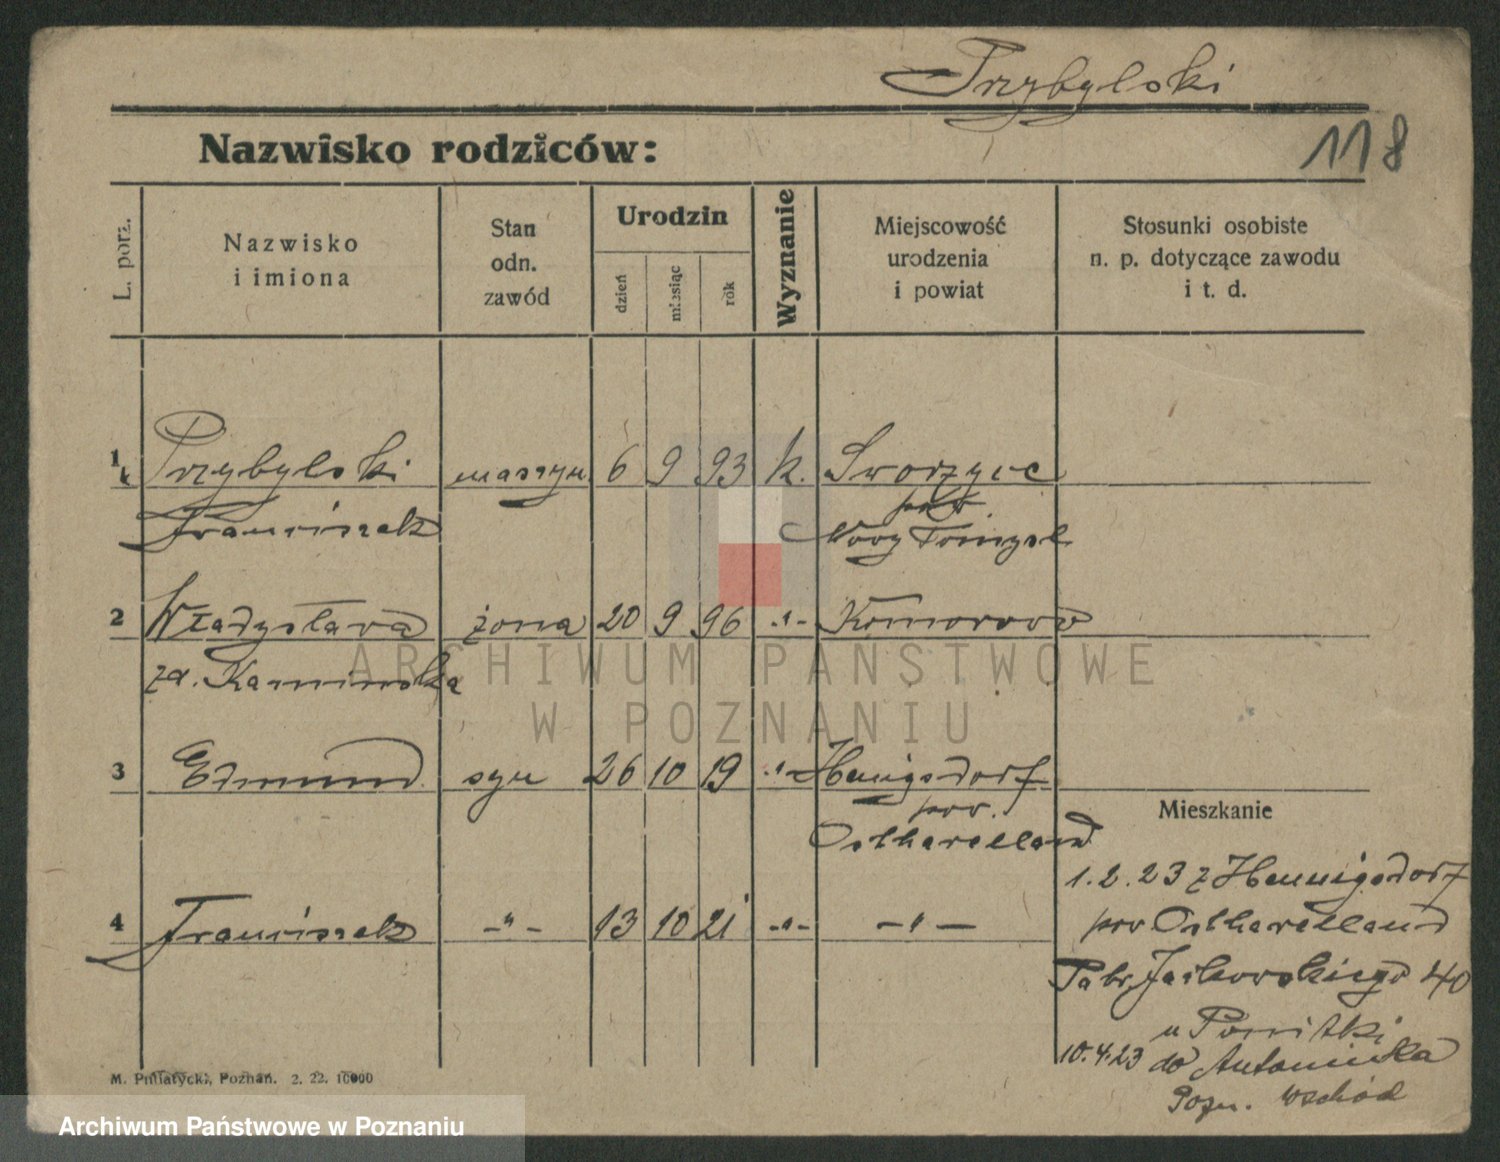 Przybylski
118
Nazwisko rodziców:
L. porz.
Nazwisko
i imiona
Stan
odn.
zawód
Urodzin
dzień
miesiąc
rok
Wyznanie
Miejscowość
urodzenia
i powiat
Stosunki osobiste
n. p. dotyczące zawodu
i t. d.
1 Przybylski maszyn. 6 9 93 k. Sworzyce
Franciszek pow
Nowy Tomysl
2 Władysława żona 20 9 96 -"- Komorowo
za. Kaminska
3 Edmund syn 26 10 19 -"- Hennigsdorf
pow.
Osthavelland
4 Franciszek -"- 13 10 21 -"- -"-
Mieszkanie
1.2.23 z Hennigsdorf
pow Osthavelland
Jackowskiego 40
u
10.4.23 do Antoninka
Pozn. wschód
M. Pniatycki, Poznań. 2. 22. 10000
ARCHIWUM PAŃSTWOWE
W POZNANIU
Archiwum Państwowe w Poznaniu